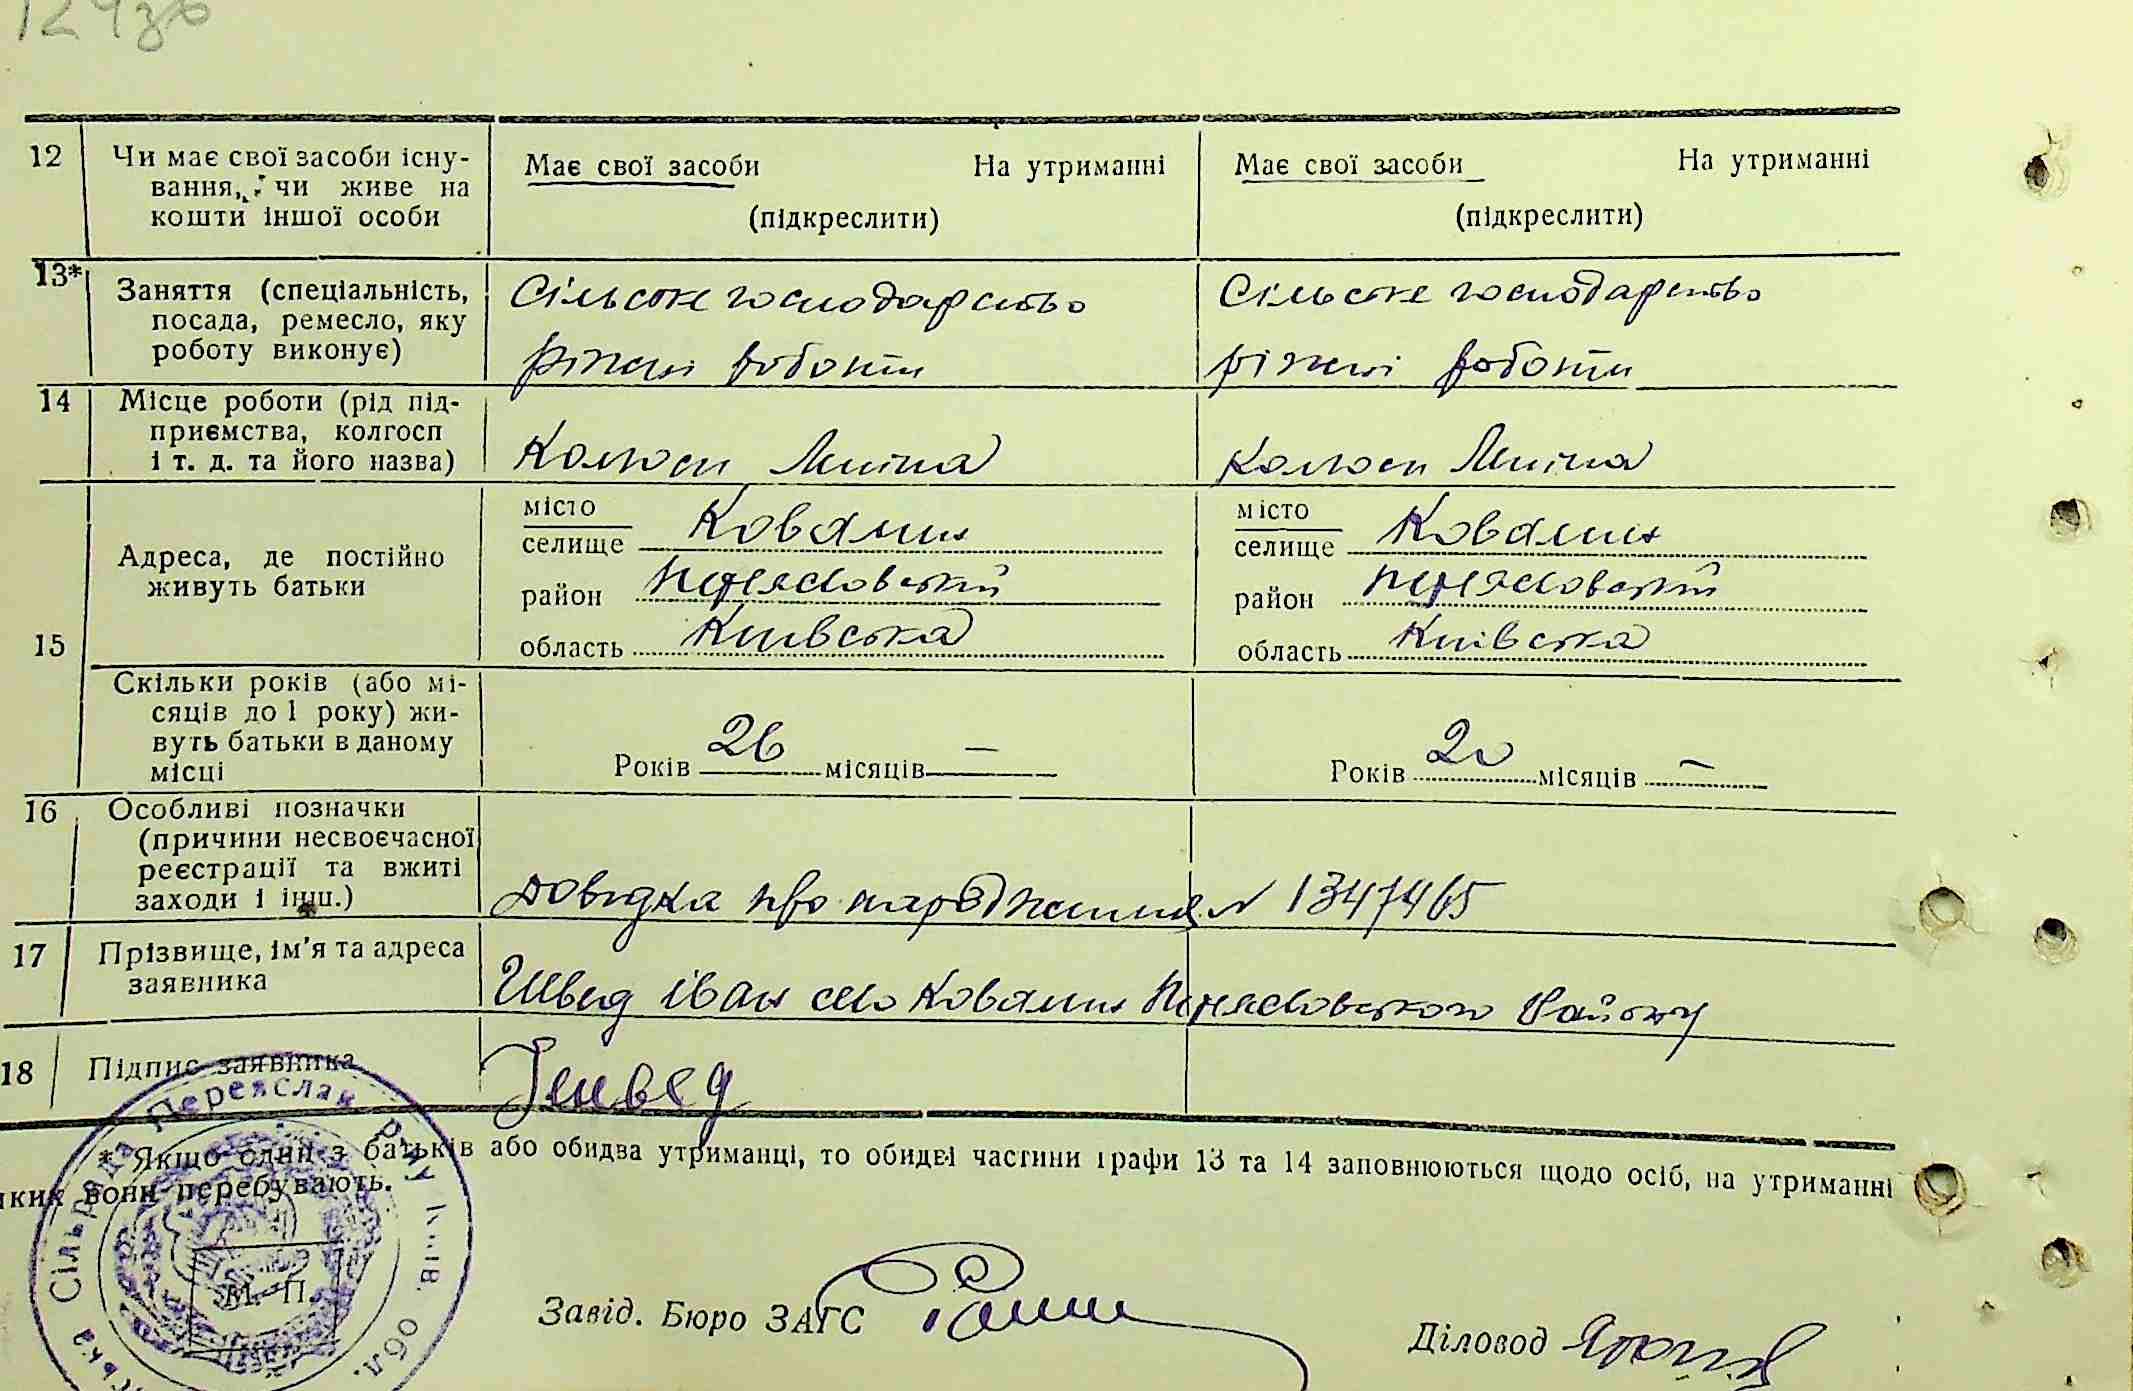 12 Чи має свої засоби існу-
вання, чи живе на
кошти іншої особи
Має свої засоби На утриманні
(підкреслити)
Має свої засоби На утриманні
(підкреслити)
13* Заняття (спеціальність,
посада, ремесло, яку
роботу виконує)
Сільське господарство
ріжні роботи
Сільське господарство
ріжні роботи
14 Місце роботи (рід під-
приємства, колгосп
і т. д. та його назва)
Колгосп Леніна
Колгосп Леніна
15 Адреса, де постійно
живуть батьки
місто
селище Ковалин
район Переяславський
область Київська
місто
селище Ковалин
район Переяславський
область Київська
Скільки років (або мі-
сяців до 1 року) жи-
вуть батьки в даному
місці
Років 26 місяців —
Років 20 місяців —
16 Особливі позначки
(причини несвоєчасної
реєстрації та вжиті
заходи і інш.)
Довідка про народження N 1347465
17 Прізвище, ім'я та адреса
заявника
Швед Іван село Ковалин Переяславського Району
18 Підпис заявника
Швед
* Якщо один з батьків або обидва утриманці, то обидві частини графи 13 та 14 заповнюються щодо осіб, на утриманні
яких вони перебувають.
Сільрада Переяслав. р-ну Київ. обл.
М. П.
Завід. Бюро ЗАГС
Діловод